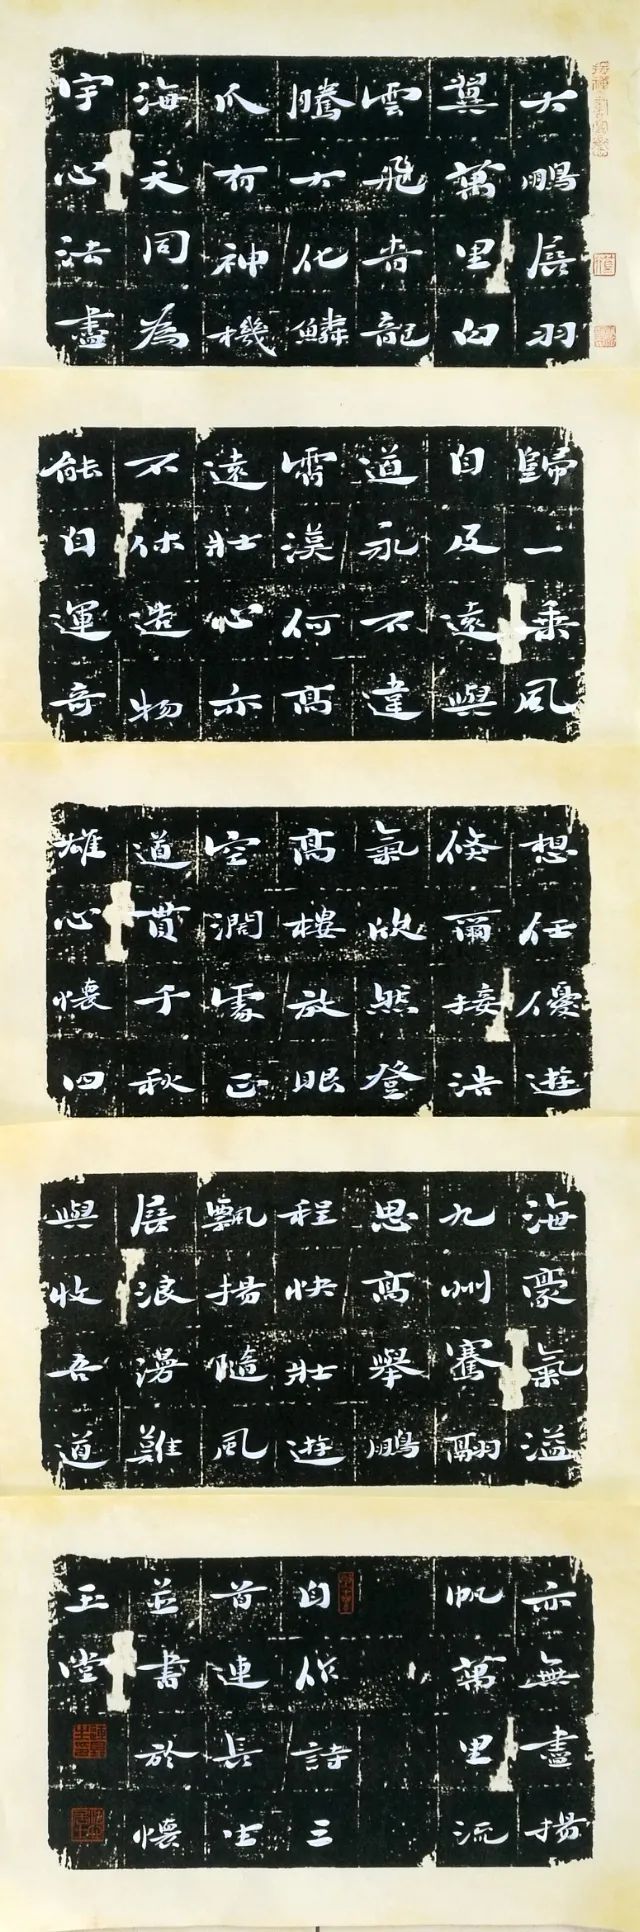 大鵬展羽
翼萬里白
雲飛蒼龍
騰大化鱗
爪有神機
海天同為
宇心法盡
歸一乘風
自及遠與
道永不違
霄漢何高
遠壯心亦
不休造物
能自運奇
想任優遊
倏爾接浩
氣欣然登
高樓放眼
空濶處正
道貫千秋
雄心懷四
海豪氣溢
九州騫翮
思高舉鵬
程快壯遊
飄揚隨風
展浪漫難
與收吾道
亦無盡揚
帆萬里流
自作詩三
首連長生
並書於懷
玉堂